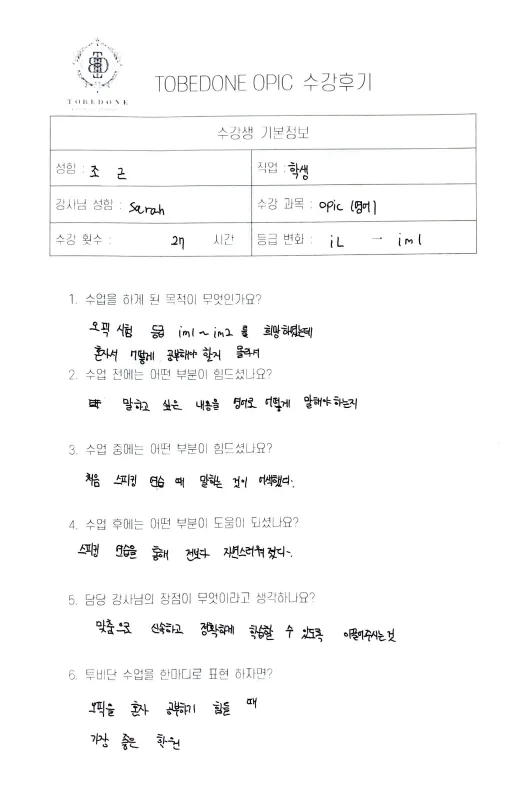 TOBEDONE
TOBEDONE OPIC 수강후기
수강생 기본정보
성함 : 조 근
직업 : 학생
강사님 성함 : Sarah
수강 과목 : opic (영어)
수강 횟수 : 27 시간
등급 변화 : iL → im1
1. 수업을 하게 된 목적이 무엇인가요?
오픽 시험 등급 im1 ~ im2 를 희망하였는데
혼자서 어떻게 공부해야 할지 몰라서
2. 수업 전에는 어떤 부분이 힘드셨나요?
말하고 싶은 내용을 영어로 어떻게 말해야 하는지
3. 수업 중에는 어떤 부분이 힘드셨나요?
처음 스피킹 연습 때 말하는 것이 어색했다.
4. 수업 후에는 어떤 부분이 도움이 되셨나요?
스피킹 연습을 통해 전보다 자연스러워 졌다.
5. 담당 강사님의 장점이 무엇이라고 생각하나요?
맞춤으로 신속하고 정확하게 학습할 수 있도록 이끌어주시는것
6. 투비단 수업을 한마디로 표현 하자면?
오픽을 혼자 공부하기 힘들 때
가장 좋은 학원